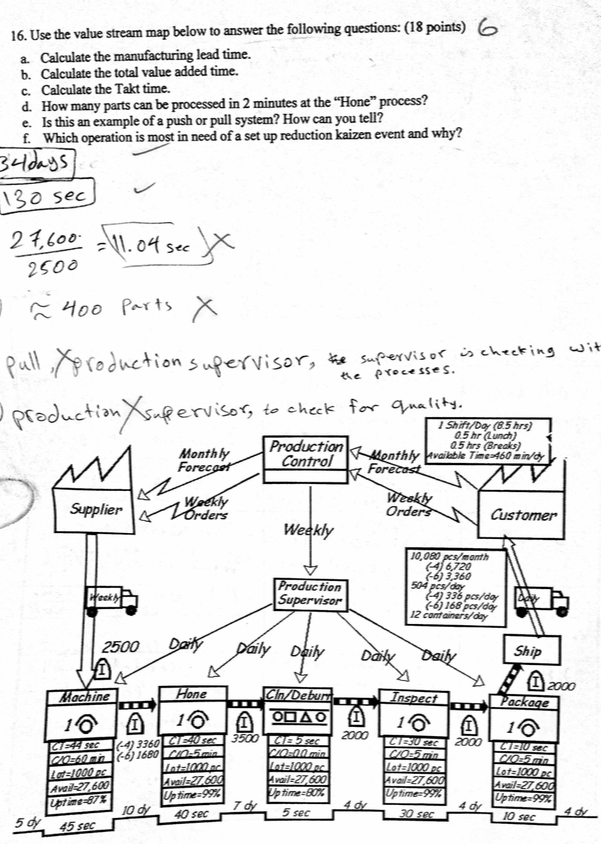 16. Use the value stream map below to answer the following questions: (18 points) 6
a. Calculate the manufacturing lead time.
b. Calculate the total value added time.
c. Calculate the Takt time.
d. How many parts can be processed in 2 minutes at the “Hone” process?
e. Is this an example of a push or pull system? How can you tell?
f. Which operation is most in need of a set up reduction kaizen event and why?
34days
130 sec
27,600
2500
= 11.04 sec X
≈ 400 Parts X
pull, X production supervisor, supervisor is checking wit
the processes.
production X supervisor, to check for quality.
1 Shift/Day (8.5 hrs)
0.5 hr (Lunch)
0.5 hrs (Breaks)
Available Time=460 min/dy
Monthly
Forecast
Production
Control
Monthly
Forecast
Supplier
Weekly
Orders
Weekly
Orders
Customer
Weekly
10,080 pcs/month
(-4) 6,720
(-6) 3,360
504 pcs/day
(-4) 336 pcs/day
(-6) 168 pcs/day
12 containers/day
Weekly
Production
Supervisor
Daily
2500
I
Daily
Daily
Daily
Daily
Daily
Ship
I
2000
Machine
1
CT=44 sec
C/O=60 min
Lot=1000 pc
Avail=27,600
Uptime=87%
I
(-4) 3360
(-6) 1680
Hone
1
CT=40 sec
C/O=5 min
Lot=1000 pc
Avail=27,600
Uptime=99%
I
3500
Cln/Deburr
CT= 5 sec
C/O=0.0 min
Lot=1000 pc
Avail=27,600
Uptime=80%
I
2000
Inspect
1
CT=30 sec
C/O=5 min
Lot=1000 pc
Avail=27,600
Uptime=99%
I
2000
Package
1
CT=10 sec
C/O=5 min
Lot=1000 pc
Avail=27,600
Uptime=99%
5 dy
45 sec
10 dy
40 sec
7 dy
5 sec
4 dy
30 sec
4 dy
10 sec
4 dy